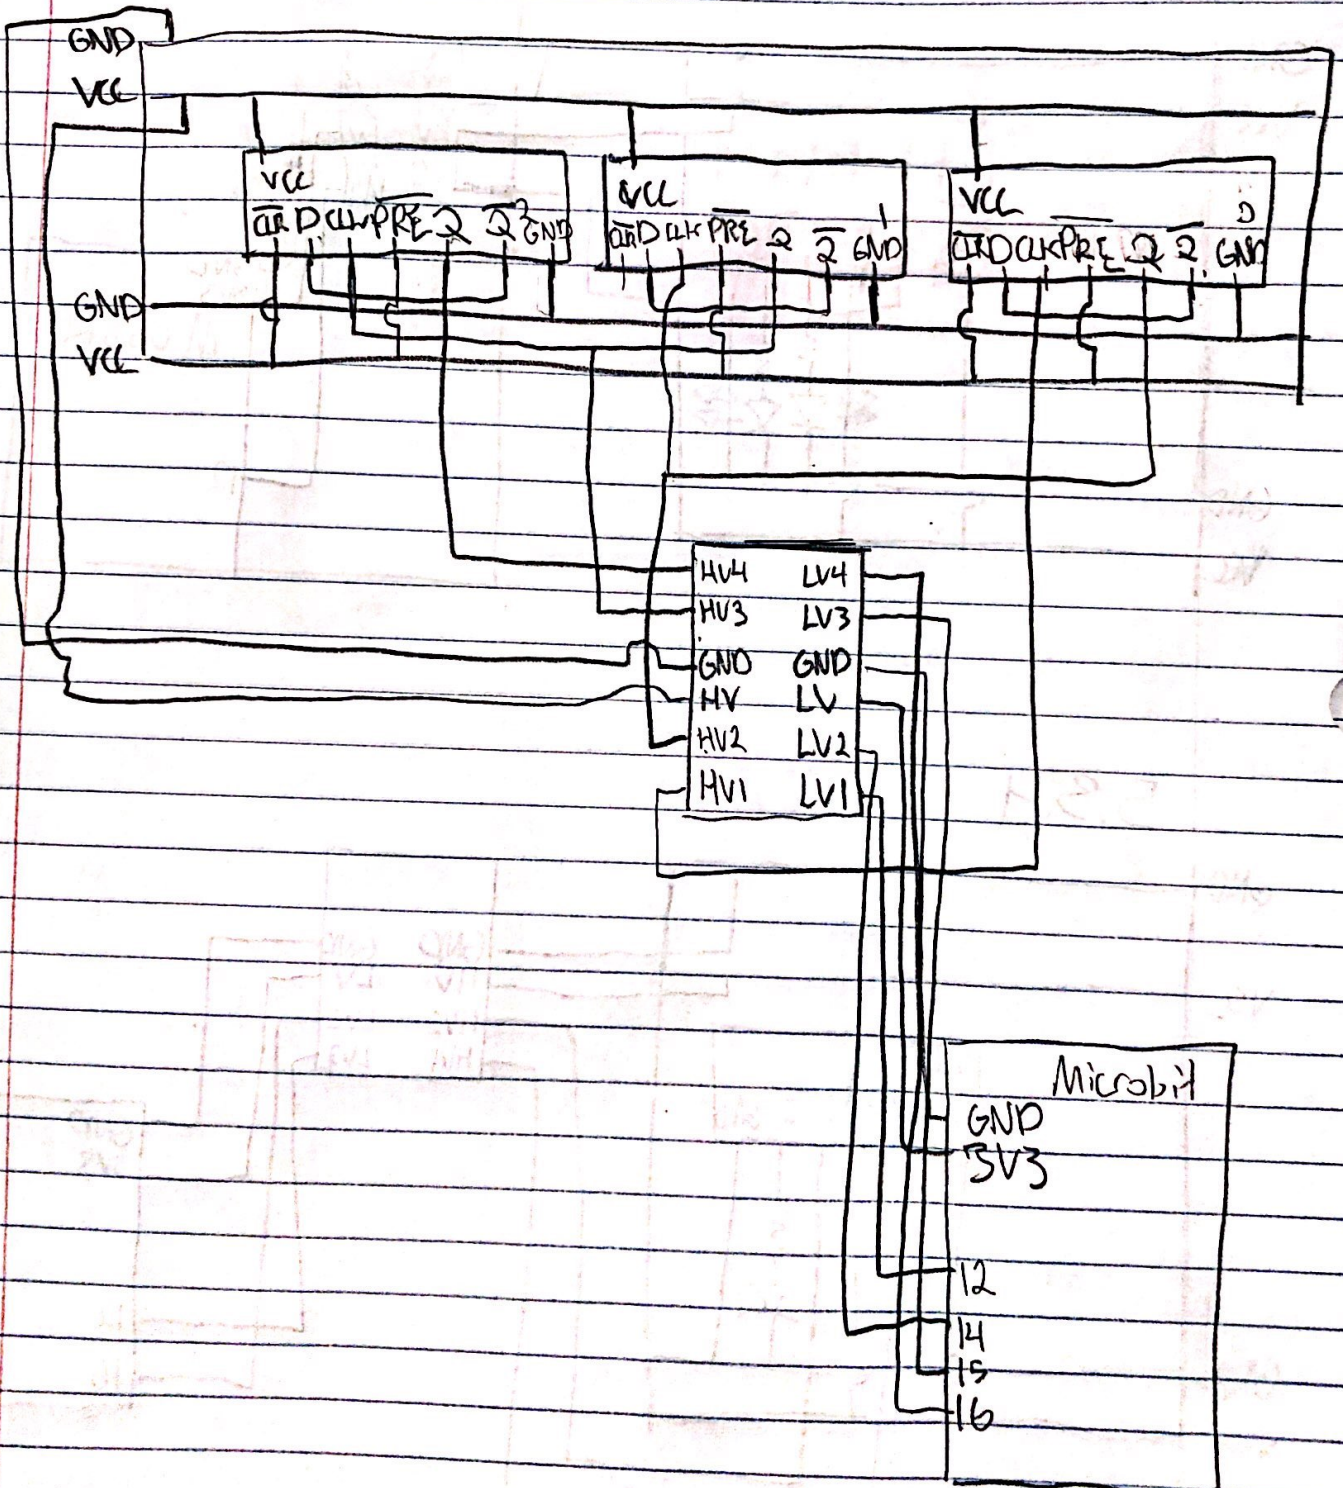 GND
VCC
VCC
C̅L̅R̅ D CLK P̅R̅E̅ Q Q̅ 2 GND
VCC 1
C̅L̅R̅ D CLK P̅R̅E̅ Q Q̅ GND
VCC 0
C̅L̅R̅ D CLK P̅R̅E̅ Q Q̅ GND
GND
VCC
HV4 LV4
HV3 LV3
GND GND
HV LV
HV2 LV2
HV1 LV1
Microbit
GND
3V3
12
14
15
16